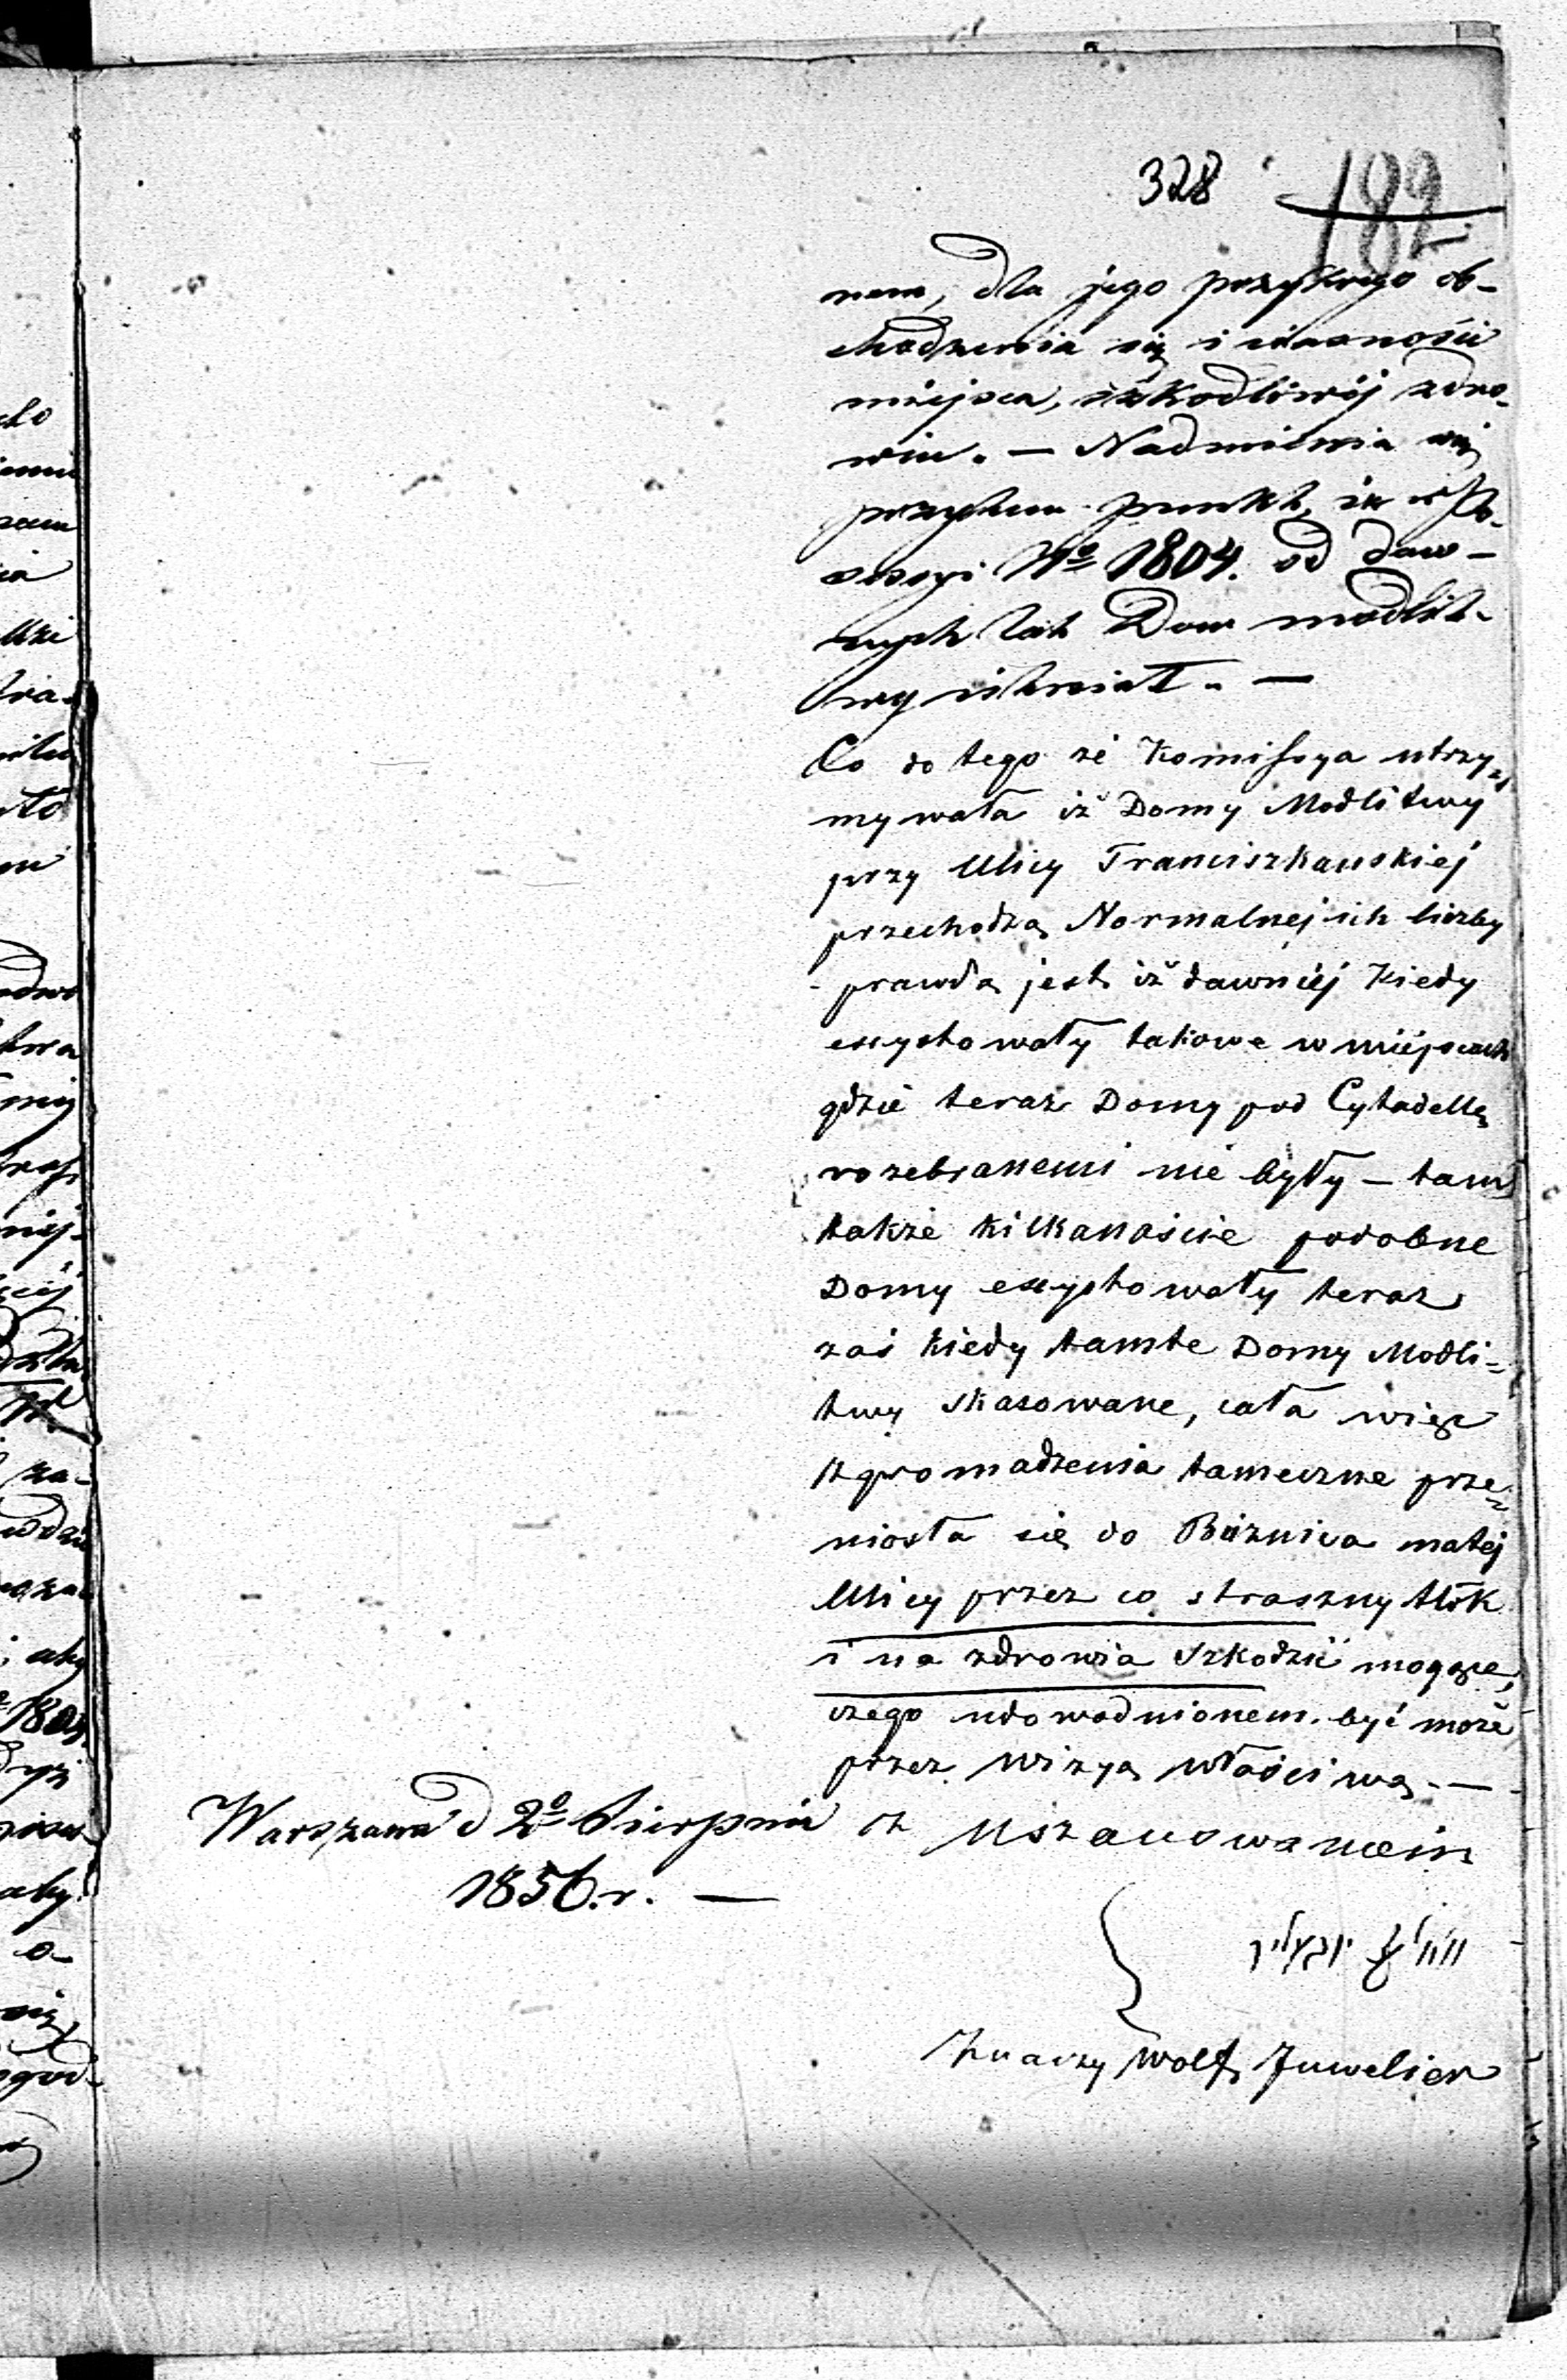 328 182
nem, dla jego przykrego ob-
chodzenia się i ciasności
miejsca, szkodliwéj zdro-
wiu. — Nadmienia się
przytem punkt, że w Po-
sessyi No 1804. od daw-
nych lat Dom modlit-
wy istniał. —
Co do tego że Komissya utrzy=
mywała iż Domy Modlitwy
przy Ulicy Franciszkanskiej
przechodzą Normalnej ich liczby
prawdą jest iż dawniéj Kiedy
exystowały takowe w miejscach
gdzie teraz Domy pod Cytadellę
rozebranemi nie były — tam
także kilkanaście podobne
Domy exystowały teraz
zaś kiedy tamte Domy Modli=
twy skasowane, cała więc
zgromadzenia tameczne prze=
niosła się do Bóżnica małej
Ulicy przez co straszny tłok
i na zdrowia szkodzić mogące,
czego udowodnionem być może
przez wizyą właściwą. —
Warszawa d 2o Sierpnia
1856. r. —
z Uszanowaniem
וואלף יובעליר
Znaczy Wolf Juwelier